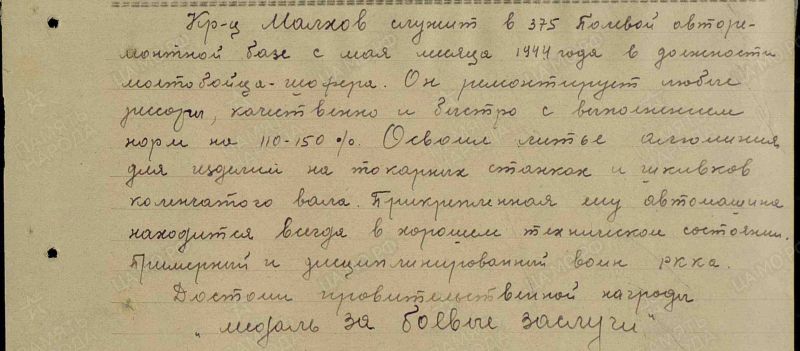 Кр-ц Малхов служит в 375 Полевой авторе-
монтной базе с мая месяца 1944 года в должности
молтобойца-шофера. Он ремонтирует любые
рессоры, качественно и быстро с выполнением
норм на 110-150%. Освоил литье алюминия
для изделий на токарных станках и шкивков
коленчатого вала. Прикрепленная ему автомашина
находится всегда в хорошем техническом состоянии.
Примерный и дисциплинированный воин РККА.
Достоин правительственной награды
"медаль за боевые заслуги"